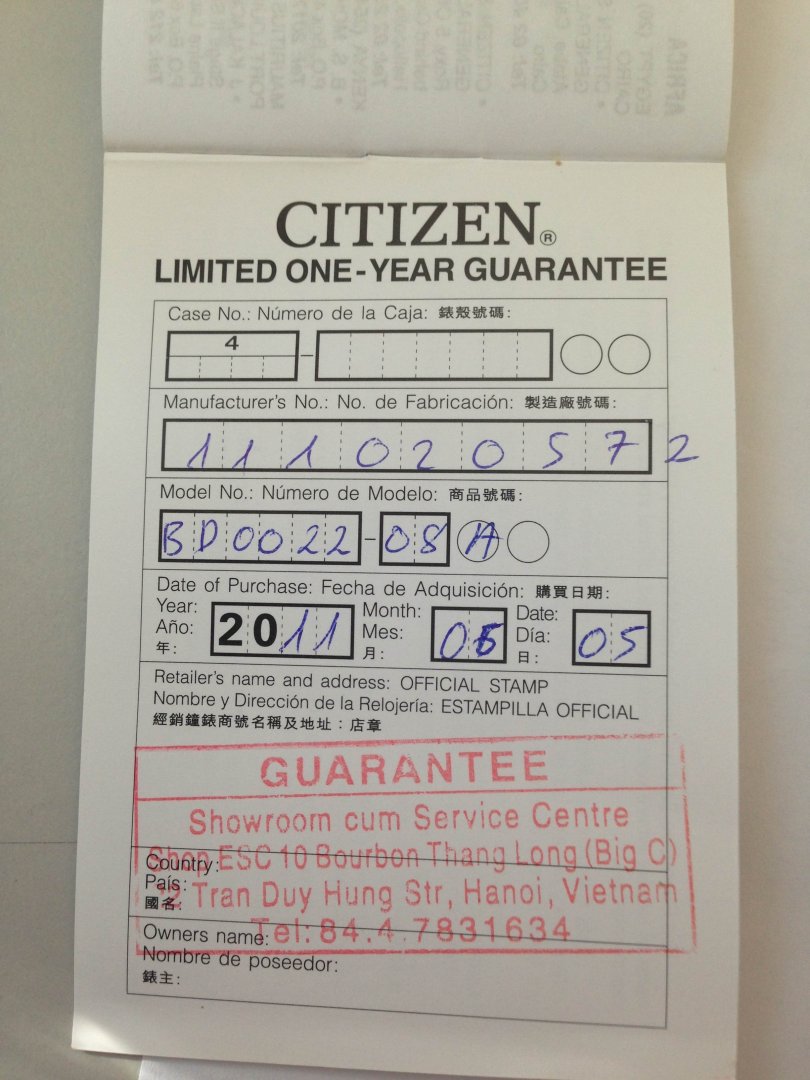 CITIZEN®
LIMITED ONE-YEAR GUARANTEE
Case No.: Número de la Caja: 錶殼號碼:
4 -
Manufacturer's No.: No. de Fabricación: 製造廠號碼:
1 1 1 0 2 0 5 7 2
Model No.: Número de Modelo: 商品號碼:
BD0022-08 A
Date of Purchase: Fecha de Adquisición: 購買日期:
Year: 2011 Month: 06 Date: 05
Año: Mes: Día:
年: 月: 日:
Retailer's name and address: OFFICIAL STAMP
Nombre y Dirección de la Relojería: ESTAMPILLA OFFICIAL
經銷鐘錶商號名稱及地址:店章
GUARANTEE
Showroom cum Service Centre
Shop ESC 10 Bourbon Thang Long (Big C)
Country:
País:
12 Tran Duy Hung Str, Hanoi, Vietnam
國名:
Tel: 84.4.7831634
Owners name:
Nombre de poseedor:
錶主: